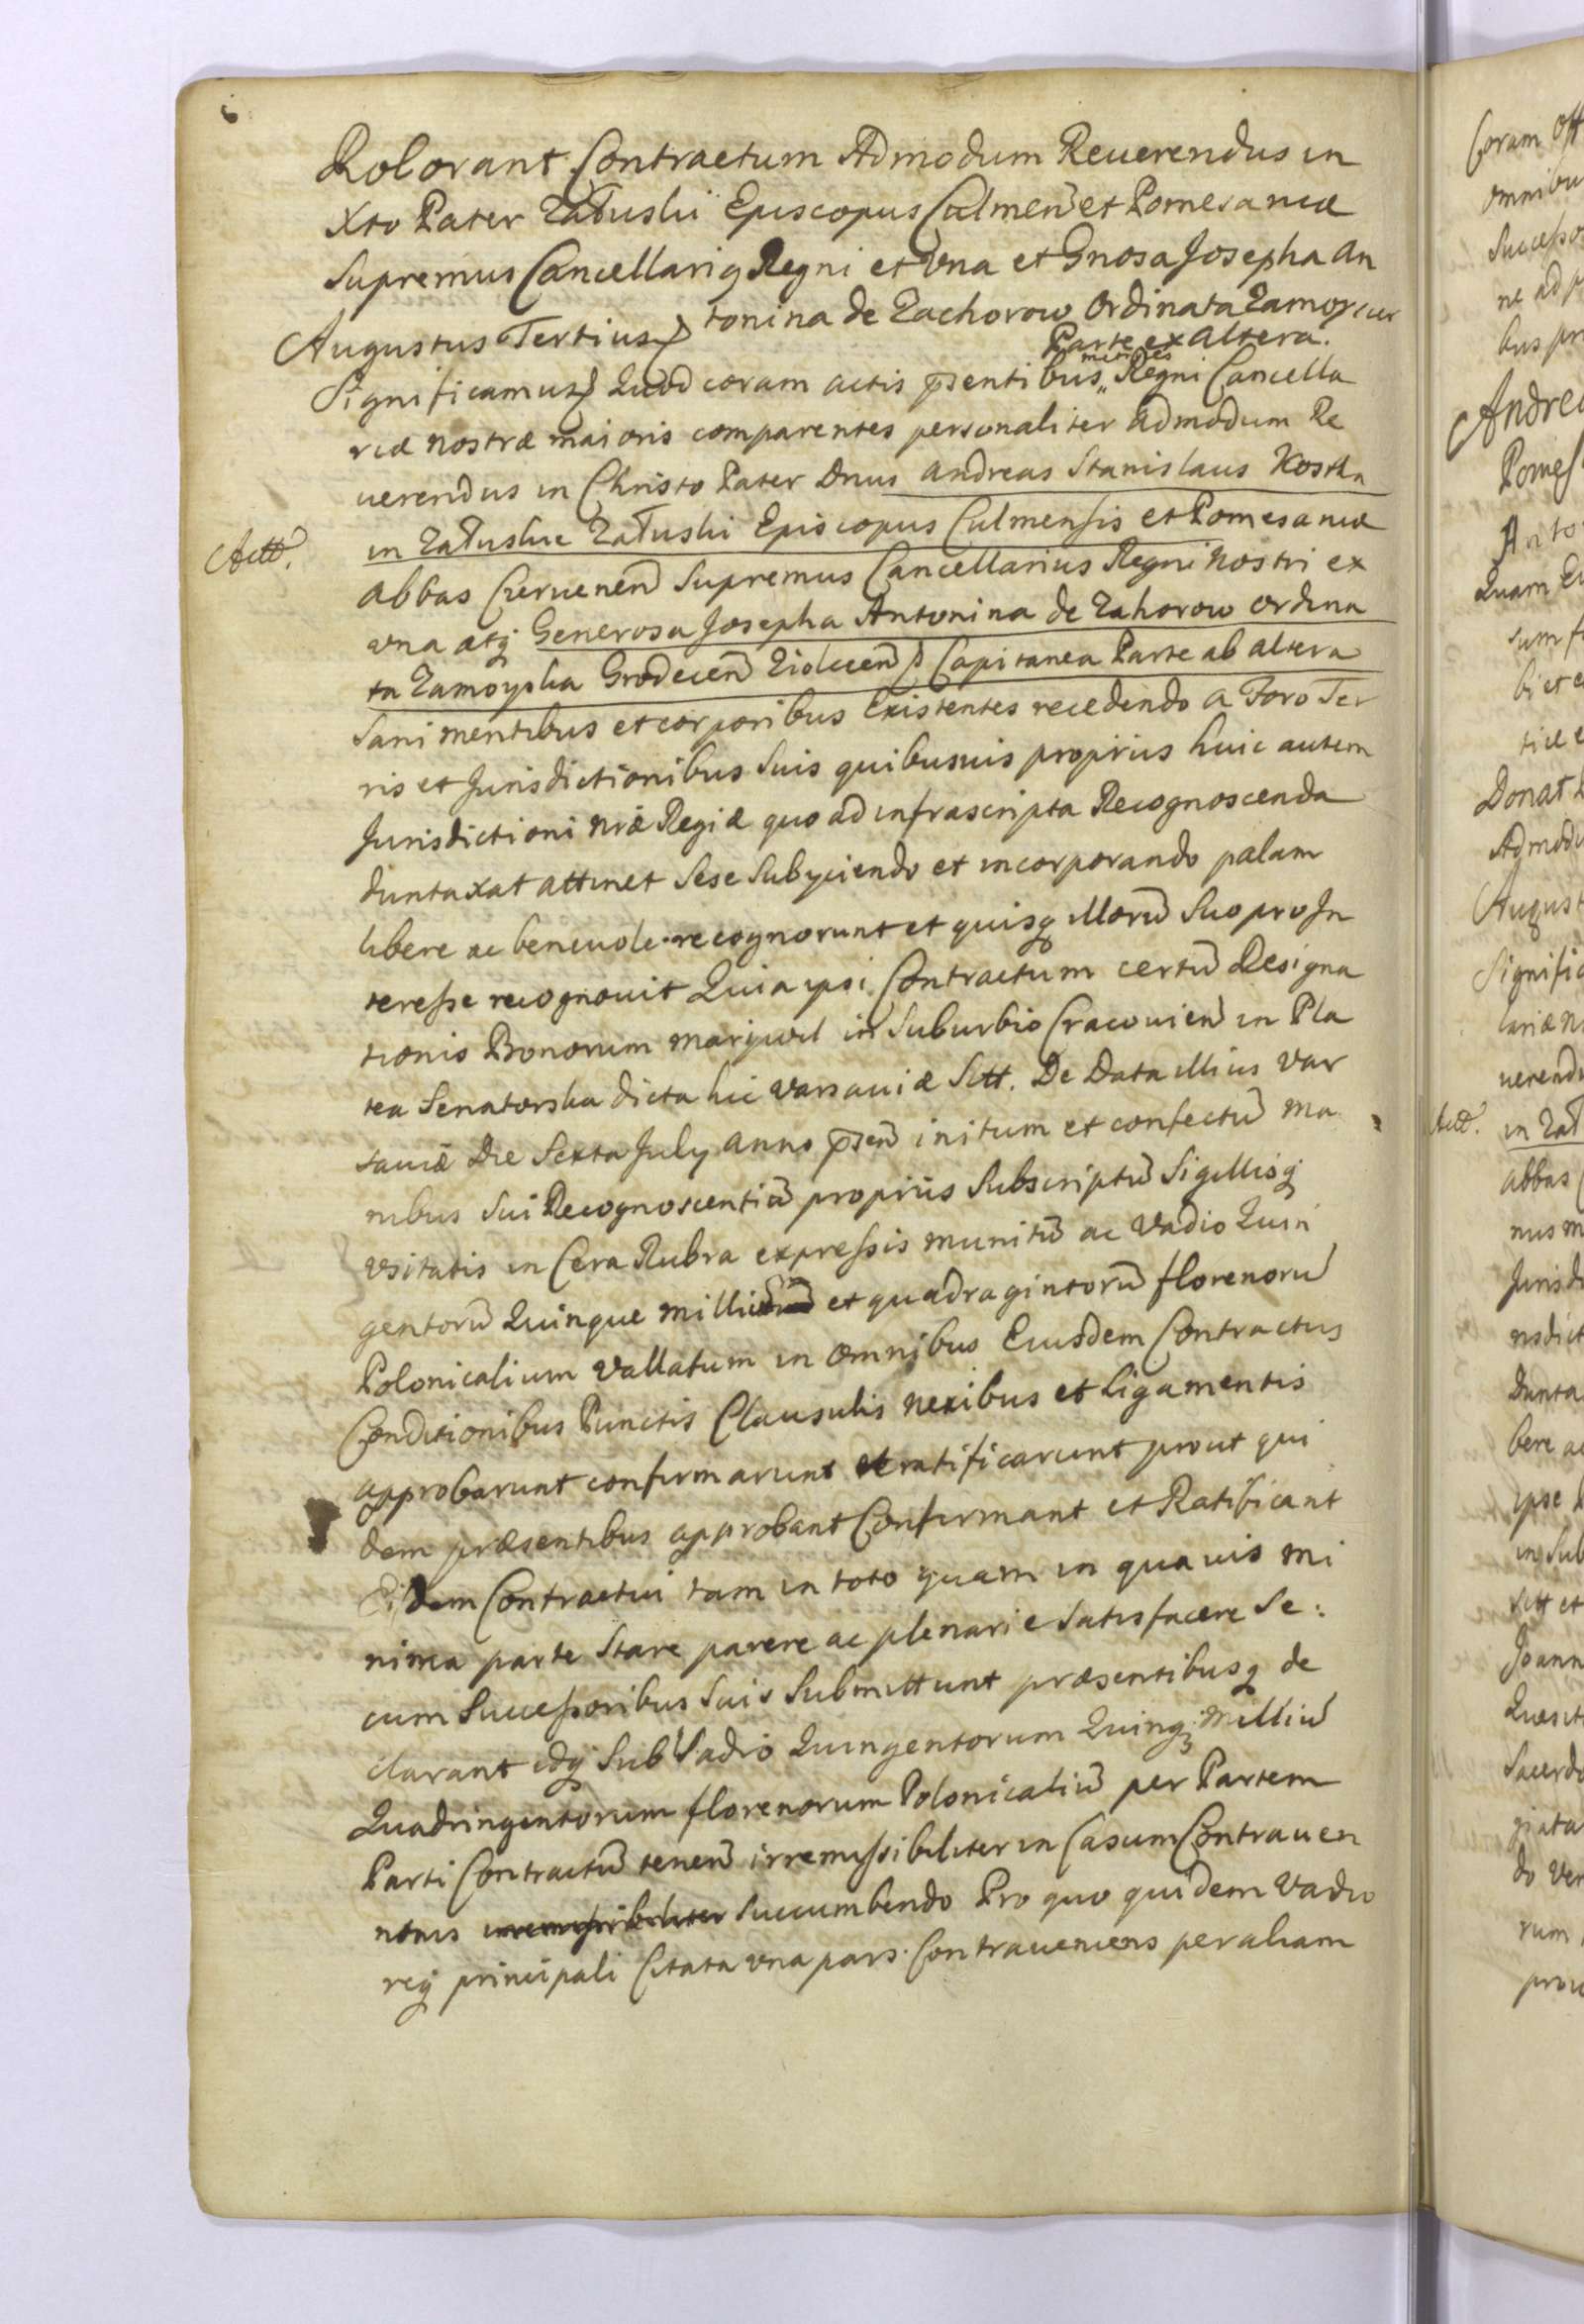 6
Rolorant Contractum Admodum Reuerendus in
Xto Pater Załuski Episcopus Culmen̄ et Pomesaniæ
Supremus Cancellariq Regni et Vna et Gnosa Josepha An
tonina de Zachorow Ordinata Zamoyscie
Augustus Tertius
Parte ex altera.
Significamus Quod coram actis p̄sentibus Regni Cancella
riæ nostræ maioris comparentes personaliter admodum Re
uerendus in Christo Pater Dnus Andreas Stanislaus Kostka
Actt.
in Załuskie Załuski Episcopus Culmensis et Pomesaniæ
abbas Czeruenen̄ Supremus Cancellarius Regni nostri ex
vna atq Generosa Josepha Antonina de Zahorow ordina
ta Zamoyska Grodecen̄ Ziolecen̄ Capitanea Parte ab altera
Sani mentibus et corporibus Existentes recedendo a Foro Ter
ris et Jurisdictionibus Suis quibusuis proprius huic autem
Jurisdictioni nr̄æ Regiæ quo ad infrascripta Recognoscenda
duntaxat attinet Sese Subyciendo et incorporando palam
libere ac beneuole recognorunt et quisq illorū Suo pro In
teresse recognouit Quia ipsi Contractum certū Resigna
tionis Bonorum marijwil in Suburbio Cracouien̄ in Pla
tea Senatorska dicta hic Varsauiæ Sitt. De Data illius Var
sauiæ Die Sexta July anno p̄sen̄ initum et confectū ma
nibus Sui Recognoscentiū propriis Subscriptū Sigillisq
Vsitatis in Cera Rubra expressis munitū ac Vadio Quin
gentorū Quinque milliū et quadragintorū florenorū
Polonicalium Vallatum in omnibus Eiusdem Contractus
Conditionibus Punctis Clausulis nexibus et Ligamentis
approbarunt confirmarunt et ratificarunt prout qui
dem præsentibus approbant Confirmant et Ratificant
Eidem Contractui tam in toto quam in quauis mi
nima parte Stare parere ac plenarie Satisfacere Se:
cum Successoribus Suis Submittunt præsentibusq de
clarant idq Sub Vadio Quingentorum Quinq Milliū
Quadringentorum florenorum Polonicaliū per Partem
Parti Contractū tenen̄ irremissibiliter in Casum Contrauen
tionis irremissibiliter Succumbendo Pro quo quidem Vadio
reiq principali Citata vna pars Contraueniens per aliam